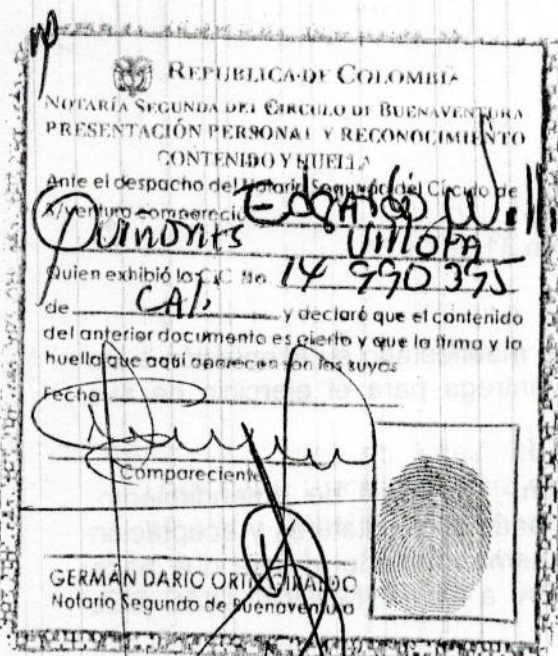 REPUBLICA DE COLOMBIA
NOTARÍA SEGUNDA DEL CIRCULO DE BUENAVENTURA
PRESENTACIÓN PERSONAL Y RECONOCIMIENTO
CONTENIDO Y HUELLA
Ante el despacho del Notario Segundo del Círculo de
B/ventura compareció Edgardo W.
Quinones
Quien exhibió la C.C. No 14 990 395
de CALI y declaró que el contenido
del anterior documento es cierto y que la firma y la
huella que aquí aparecen son las suyas
Fecha
Compareciente
GERMAN DARIO ORTIZ GIRALDO
Notario Segundo de Buenaventura